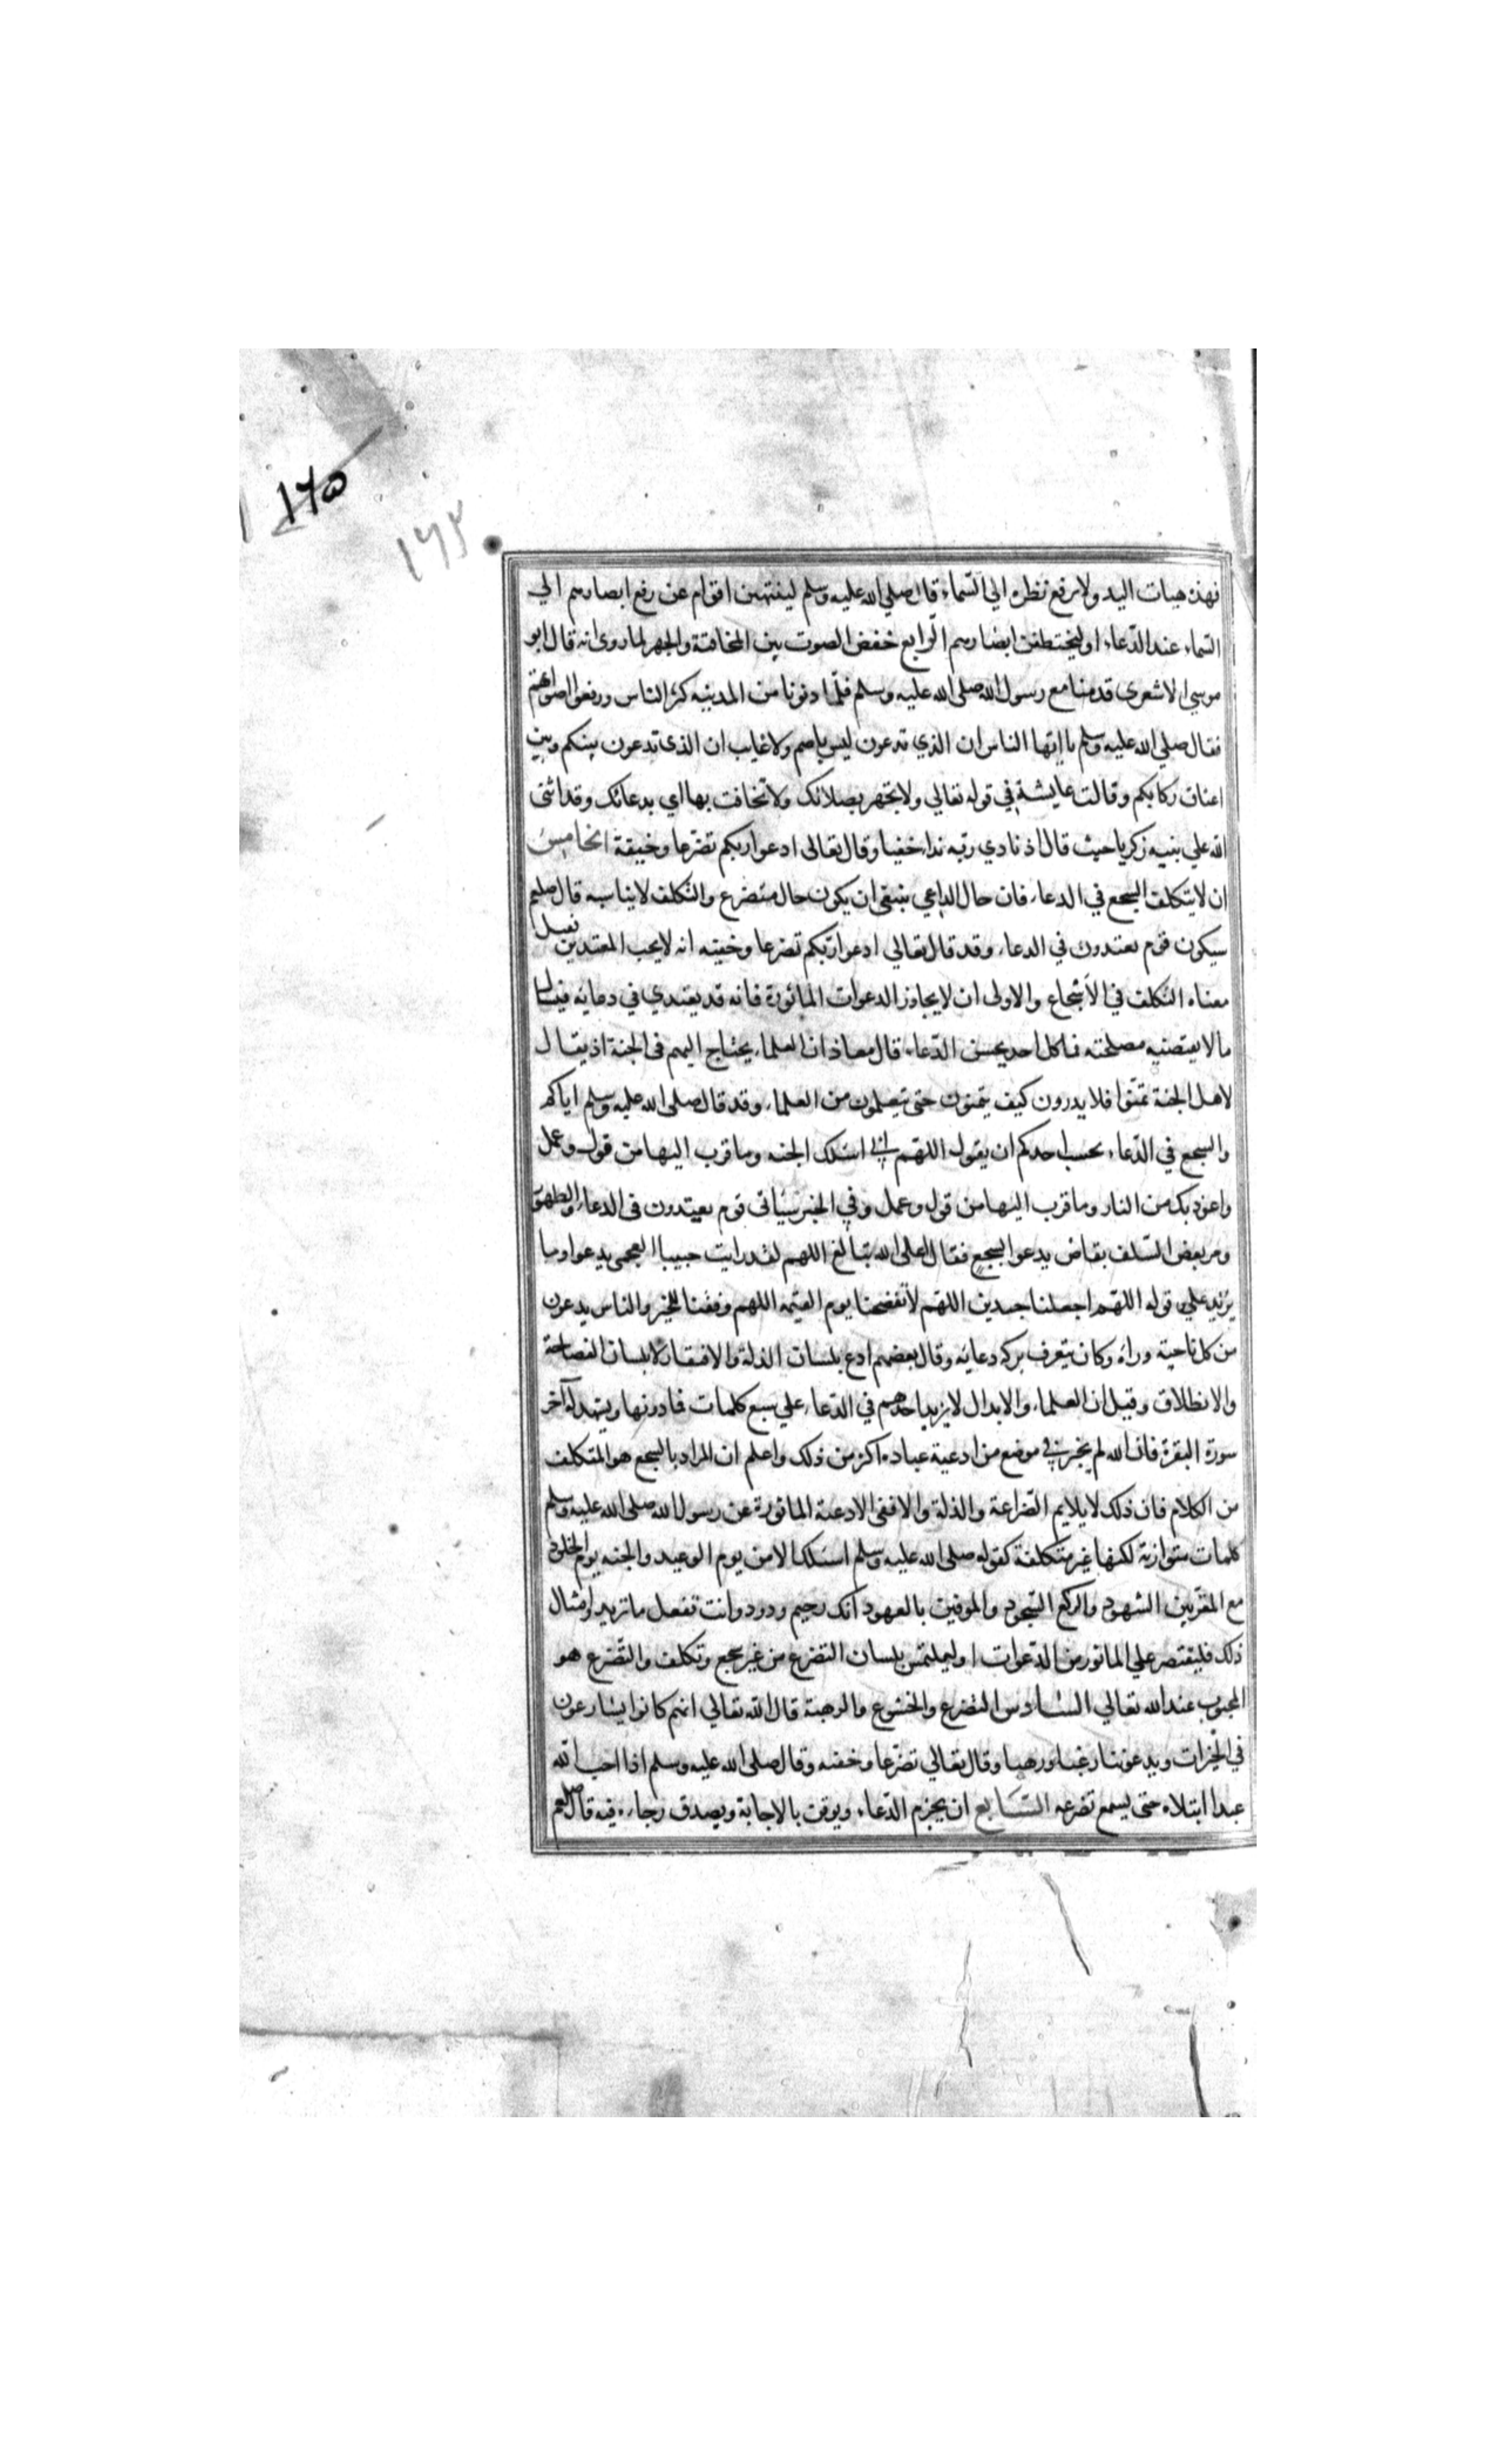 ١٦٥
١٦٣
فهذه هيات اليد ولا يرفع نظره الي السّماء قال صلي الله عليه وسلم لينتهين اقوام عن رفع ابصارهم الي
السّماء عند الدّعاء او ليختطفن ابصارهم الرّابع خفض الصوت بين المخافتة والجهر لما روى انه قال ابو
موسي الاشعرى قدمنا مع رسول الله صلى الله عليه وسلم فلمّا دنونا من المدينه كبّر الناس ورفعوا اصواتهم
فقال صلي الله عليه وسلم يا ايّها الناس ان الذي تدعون ليس باصم ولا غايب ان الذى تدعون بينكم وبين
اعناق ركابكم وقالت عايشة في قوله تعالي ولا تجهر بصلاتك ولا تخافت بها اي بدعائك وقد اثنى
الله علي نبيه زكريا حيث قال اذ نادي ربّه نداء خفيا وقال تعالى ادعوا ربكم تضرّعا وخيفة الخامس
ان لا يتكلف السجع في الدعاء فان حال الداعي ينبغى ان يكون حال متضرع والتكلف لا يناسبه قال صلعم
سيكون قوم يعتدون في الدعاء وقد قال تعالي ادعوا ربّكم تضرعا وخفيه انه لا يحب المعتدين قيل
معناه التكلف في الاسجاع والاولى ان لا يجاوز الدعوات الماثورة فانه قد يعتدي في دعائه فيسال
ما لا يقتضيه مصلحته فما كل احد يحسن الدّعاء قال معاذ ان العلماء يحتاج اليهم فى الجنة اذ يقال
لاهل الجنة تمنّوا فلا يدرون كيف يتمنون حتى يتعلمون من العلماء وقد قال صلى الله عليه وسلم اياكم
والسجع في الدّعاء بحسب احدكم ان يقول اللهم اني اسئلك الجنه وما قرب اليها من قول وعمل
واعوذ بك من النار وما قرب اليها من قول وعمل وفي الخبر سياتى قوم يعتدون فى الدعاء والطهور
ومر بعض السّلف بقاض يدعو السجع فقال اعلى الله تبالغ اللهم لقد رايت حبيبا العجمى يدعو وما
يزيد علي قوله اللهم اجعلنا جيدين اللهم لا تفضحنا يوم القيمه اللهم وفقنا للخير والناس يدعون
من كل ناحية وراه وكان يتعرف بركه دعائه وقال بعضهم ادع بلسان الذلة والافتقار لا بلسان الفصاحة
والانطلاق وقيل ان العلماء والابدال لا يزيد احدهم في الدّعاء علي سبع كلمات فما دونها ويشهد له آخر
سورة البقرة فان الله لم يخبر في موضع من ادعية عباده اكثر من ذلك واعلم ان المراد بالسجع هو المتكلف
من الكلام فان ذلك لا يلايم الضراعة والذلة والا ففى الادعية الماثورة عن رسول الله صلى الله عليه وسلم
كلمات متوازنة لكنها غير متكلفة كقوله صلى الله عليه وسلم اسئلك الامن يوم الوعيد والجنه يوم الخلود
مع المقرّبين الشهود والركع السّجود والموفين بالعهود انك رحيم ودود وانت تفعل ما تريد وامثال
ذلك فليقتصر علي الماثور من الدّعوات او ليلتمس بلسان التضرع من غير سجع وتكلف والتضرع هو
المحبوب عند الله تعالي السّادس التضرع والخشوع والرهبة قال الله تعالي انهم كانوا يسارعون
في الخيرات ويدعوننا رغبا ورهبا وقال تعالي تضرّعا وخفيه وقال صلى الله عليه وسلم اذا احب الله
عبدا ابتلاه حتى يسمع تضرعه السّابع ان يجزم الدّعاء ويوقن بالاجابة ويصدق رجاءه فيه قال صلعم